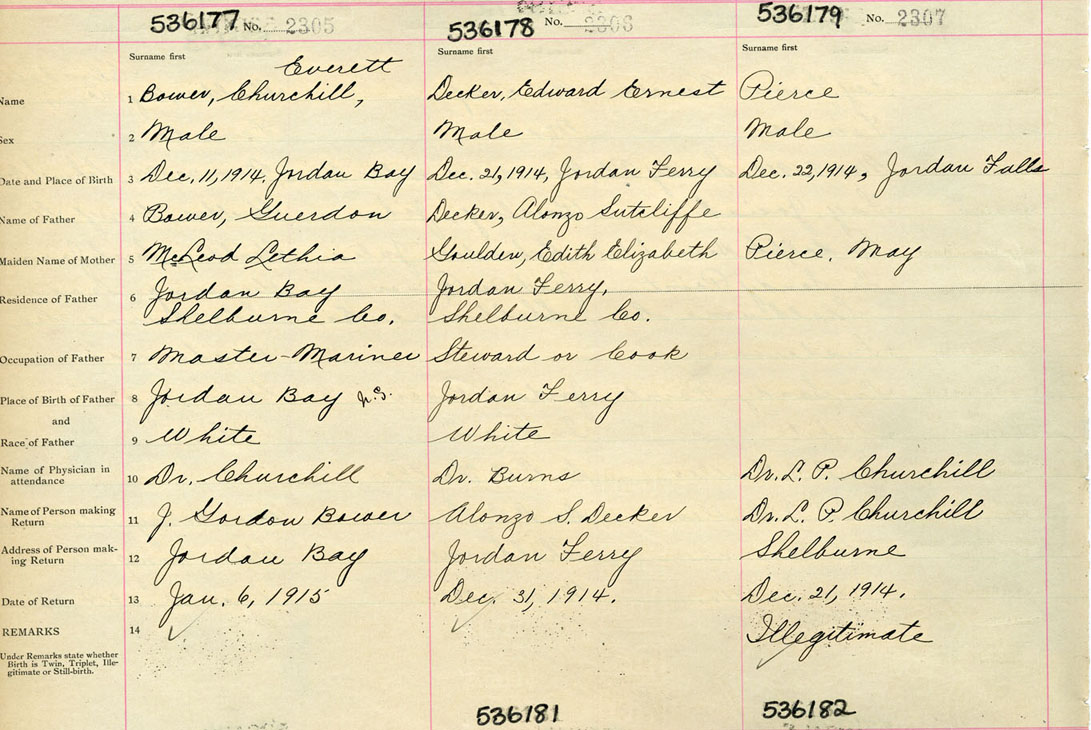 536177 No. 2305
536178 No. 2306
536179 No. 2307
Surname first
Surname first
Surname first
Everett
Name 1 Bower, Churchill, Decker, Edward Ernest Pierce
Sex 2 Male Male Male
Date and Place of Birth 3 Dec. 11, 1914. Jordan Bay Dec. 21, 1914, Jordan Ferry Dec. 22, 1914, Jordan Falls
Name of Father 4 Bower, Guerdon Decker, Alonzo Sutcliffe
Maiden Name of Mother 5 McLeod Lethia Goulden, Edith Elizabeth Pierce, May
Residence of Father 6 Jordan Bay Jordan Ferry,
Shelburne Co. Shelburne Co.
Occupation of Father 7 Master-Mariner Steward or Cook
Place of Birth of Father 8 Jordan Bay N.S. Jordan Ferry
and
Race of Father 9 White White
Name of Physician in
attendance 10 Dr. Churchill Dr. Burns Dr. L. P. Churchill
Name of Person making
Return 11 J. Gordon Bower Alonzo S. Decker Dr. L. P. Churchill
Address of Person mak-
ing Return 12 Jordan Bay Jordan Ferry Shelburne
Date of Return 13 Jan. 6, 1915 Dec. 31, 1914. Dec. 21, 1914.
REMARKS 14 Illegitimate
Under Remarks state whether
Birth is Twin, Triplet, Ille-
gitimate or Still-birth.
536181 536182